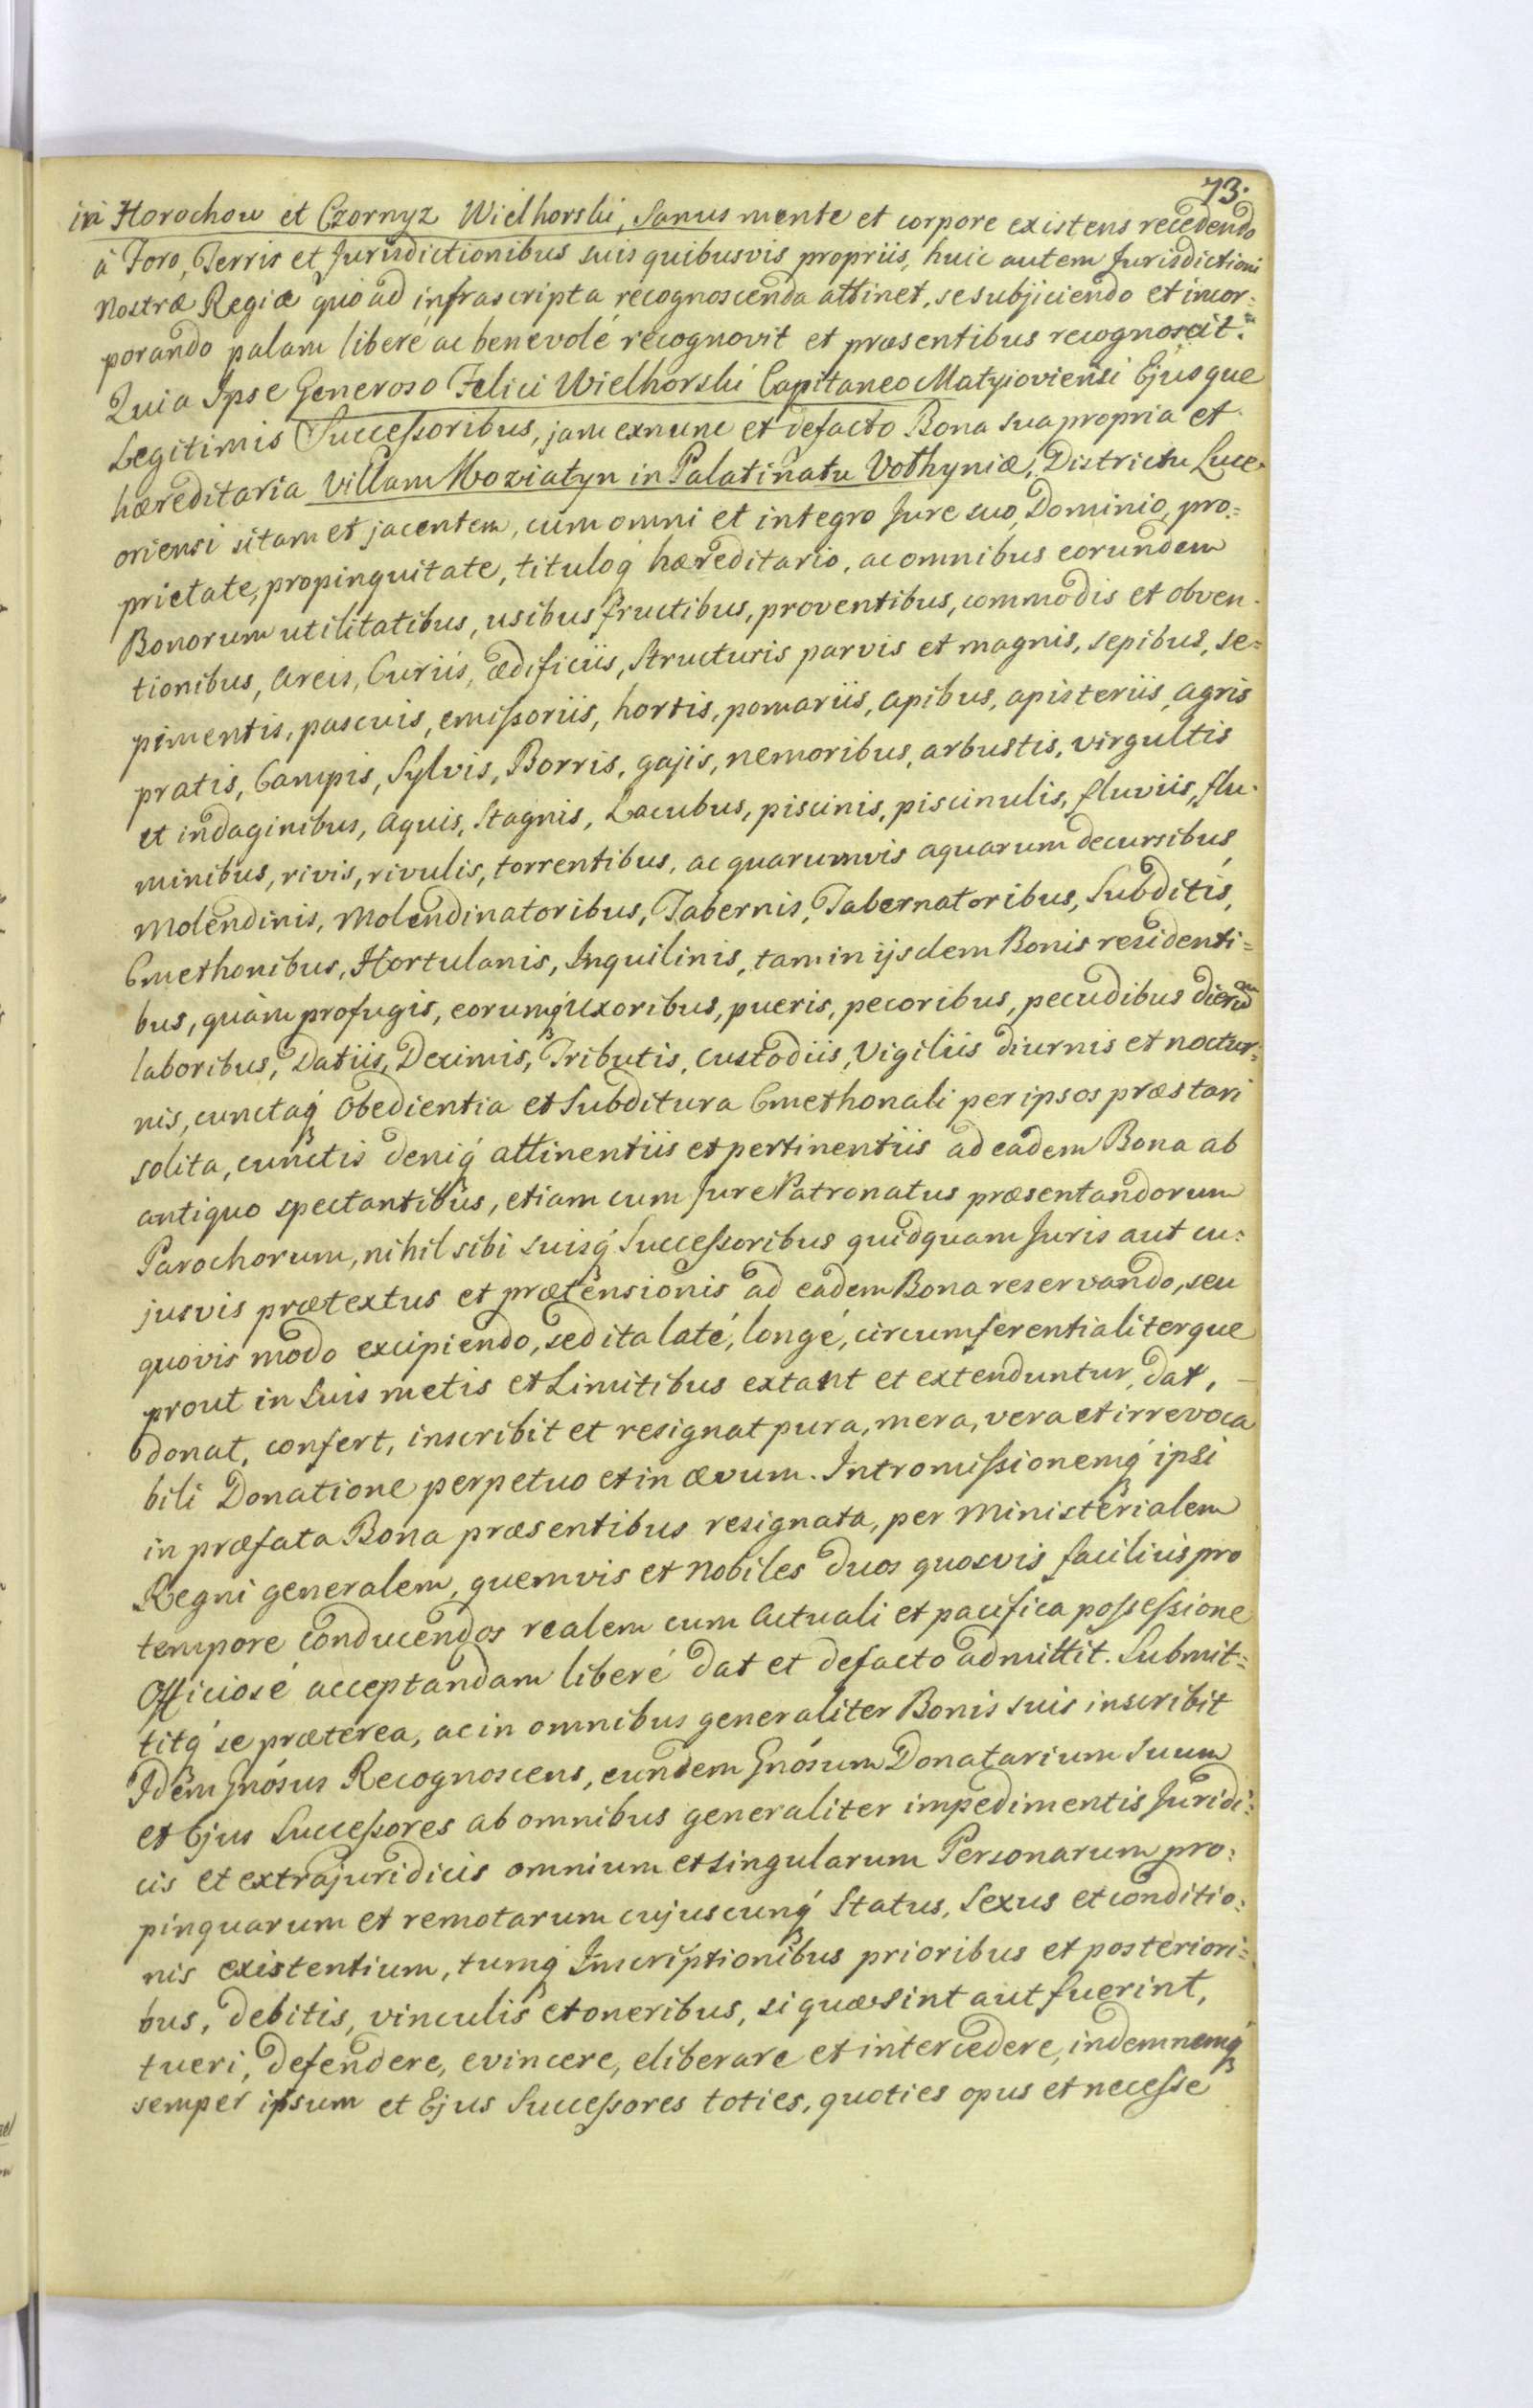 73.
in Horochow et Czornyz Wielhorski, Sanus mente et corpore existens recedendo
à Foro, Terris et Jurisdictionibus suis quibusvis propriis, huic autem Jurisdictioni
Nostræ Regiæ quo ad infrascripta recognoscenda attinet, se subjiciendo et incor=
porando palam liberé ac benevolé recognovit et præsentibus recognoscit.
Quia Ipse Generoso Felici Wielhorski Capitaneo Matyioviensi Ejusque
Legitimis Successoribus, jam exnunc et defacto Bona sua propria et
hæreditaria Villam Moziatyn in Palatinatu Volhyniæ, Districtu Luce=
oriensi sitam et jacentem, cum omni et integro Jure suo, Dominio, pro=
prietate, propinquitate, tituloq́ hæreditario, ac omnibus eorundem
Bonorum utilitatibus, usibusfructibus, proventibus, commodis et obven=
tionibus, Areis, Curiis, ædificiis, Structuris parvis et magnis, sepibus, se=
pimentis, pascuis, emissoriis, hortis, pomariis, apibus, apisteriis, agris
pratis, Campis, Sylvis, Borris, gajis, nemoribus, arbustis, virgultis
et indaginibus, Aquis, Stagnis, Lacubus, piscinis, piscinulis, fluviis, flu=
minibus, rivis, rivulis, torrentibus, ac quarumvis aquarum decursibus,
Molendinis, Molendinatoribus, Tabernis, Tabernatoribus, Subditis,
Cmethonibus, Hortulanis, Inquilinis, tam in ijsdem Bonis residenti=
bus, quàm profugis, eorumq́ Uxoribus, pueris, pecoribus, pecudibus dierum
laboribus, Datiis, Decimis, Tributis, custodiis, Vigiliis diurnis et noctur=
nis, cunctaq́ Obedientia et Subditura Cmethonali per ipsos præstari
solita, cunctis deniq́ attinentiis et pertinentiis ad eadem Bona ab
antiquo spectantibus, etiam cum Jure Patronatus præsentandorum
Parochorum, nihil sibi suisq́ Successoribus quidquam Juris aut cu=
jusvis prætextus et prætensionis ad eadem Bona reservando, seu
quovis modo excipiendo, sed ita laté, longé, circumferentialiterque
prout in Suis metis et Limitibus extant et extenduntur, dat, —
donat, confert, inscribit et resignat pura, mera, vera et irrevoca
bili Donatione perpetuo et in ævum. Intromissionemq́ ipsi
in præfata Bona præsentibus resignata, per Ministerialem
Regni generalem, quemvis et Nobiles duos quosvis faciliùs pro
tempore conducendos realem cum Actuali et pacifica possessione
Officiosé acceptandam liberé dat et defacto admittit. Submit=
titq́ se præterea, ac in omnibus generaliter Bonis suis inscribit
Idem Gnósus Recognoscens, eundem Gnósum Donatarium Suum
et Ejus Successores ab omnibus generaliter impedimentis Juridi=
cis et extrajuridicis omnium et singularum Personarum pro=
pinquarum et remotarum cujuscunq́ Status, Sexus et conditio=
nis existentium, tumq́ Inscriptionibus prioribus et posteriori=
bus, debitis, vinculis et oneribus, si quæ sint aut fuerint,
tueri, defendere, evincere, eliberare et intercedere, indemnemq́
semper ipsum et Ejus Successores toties, quoties opus et necesse